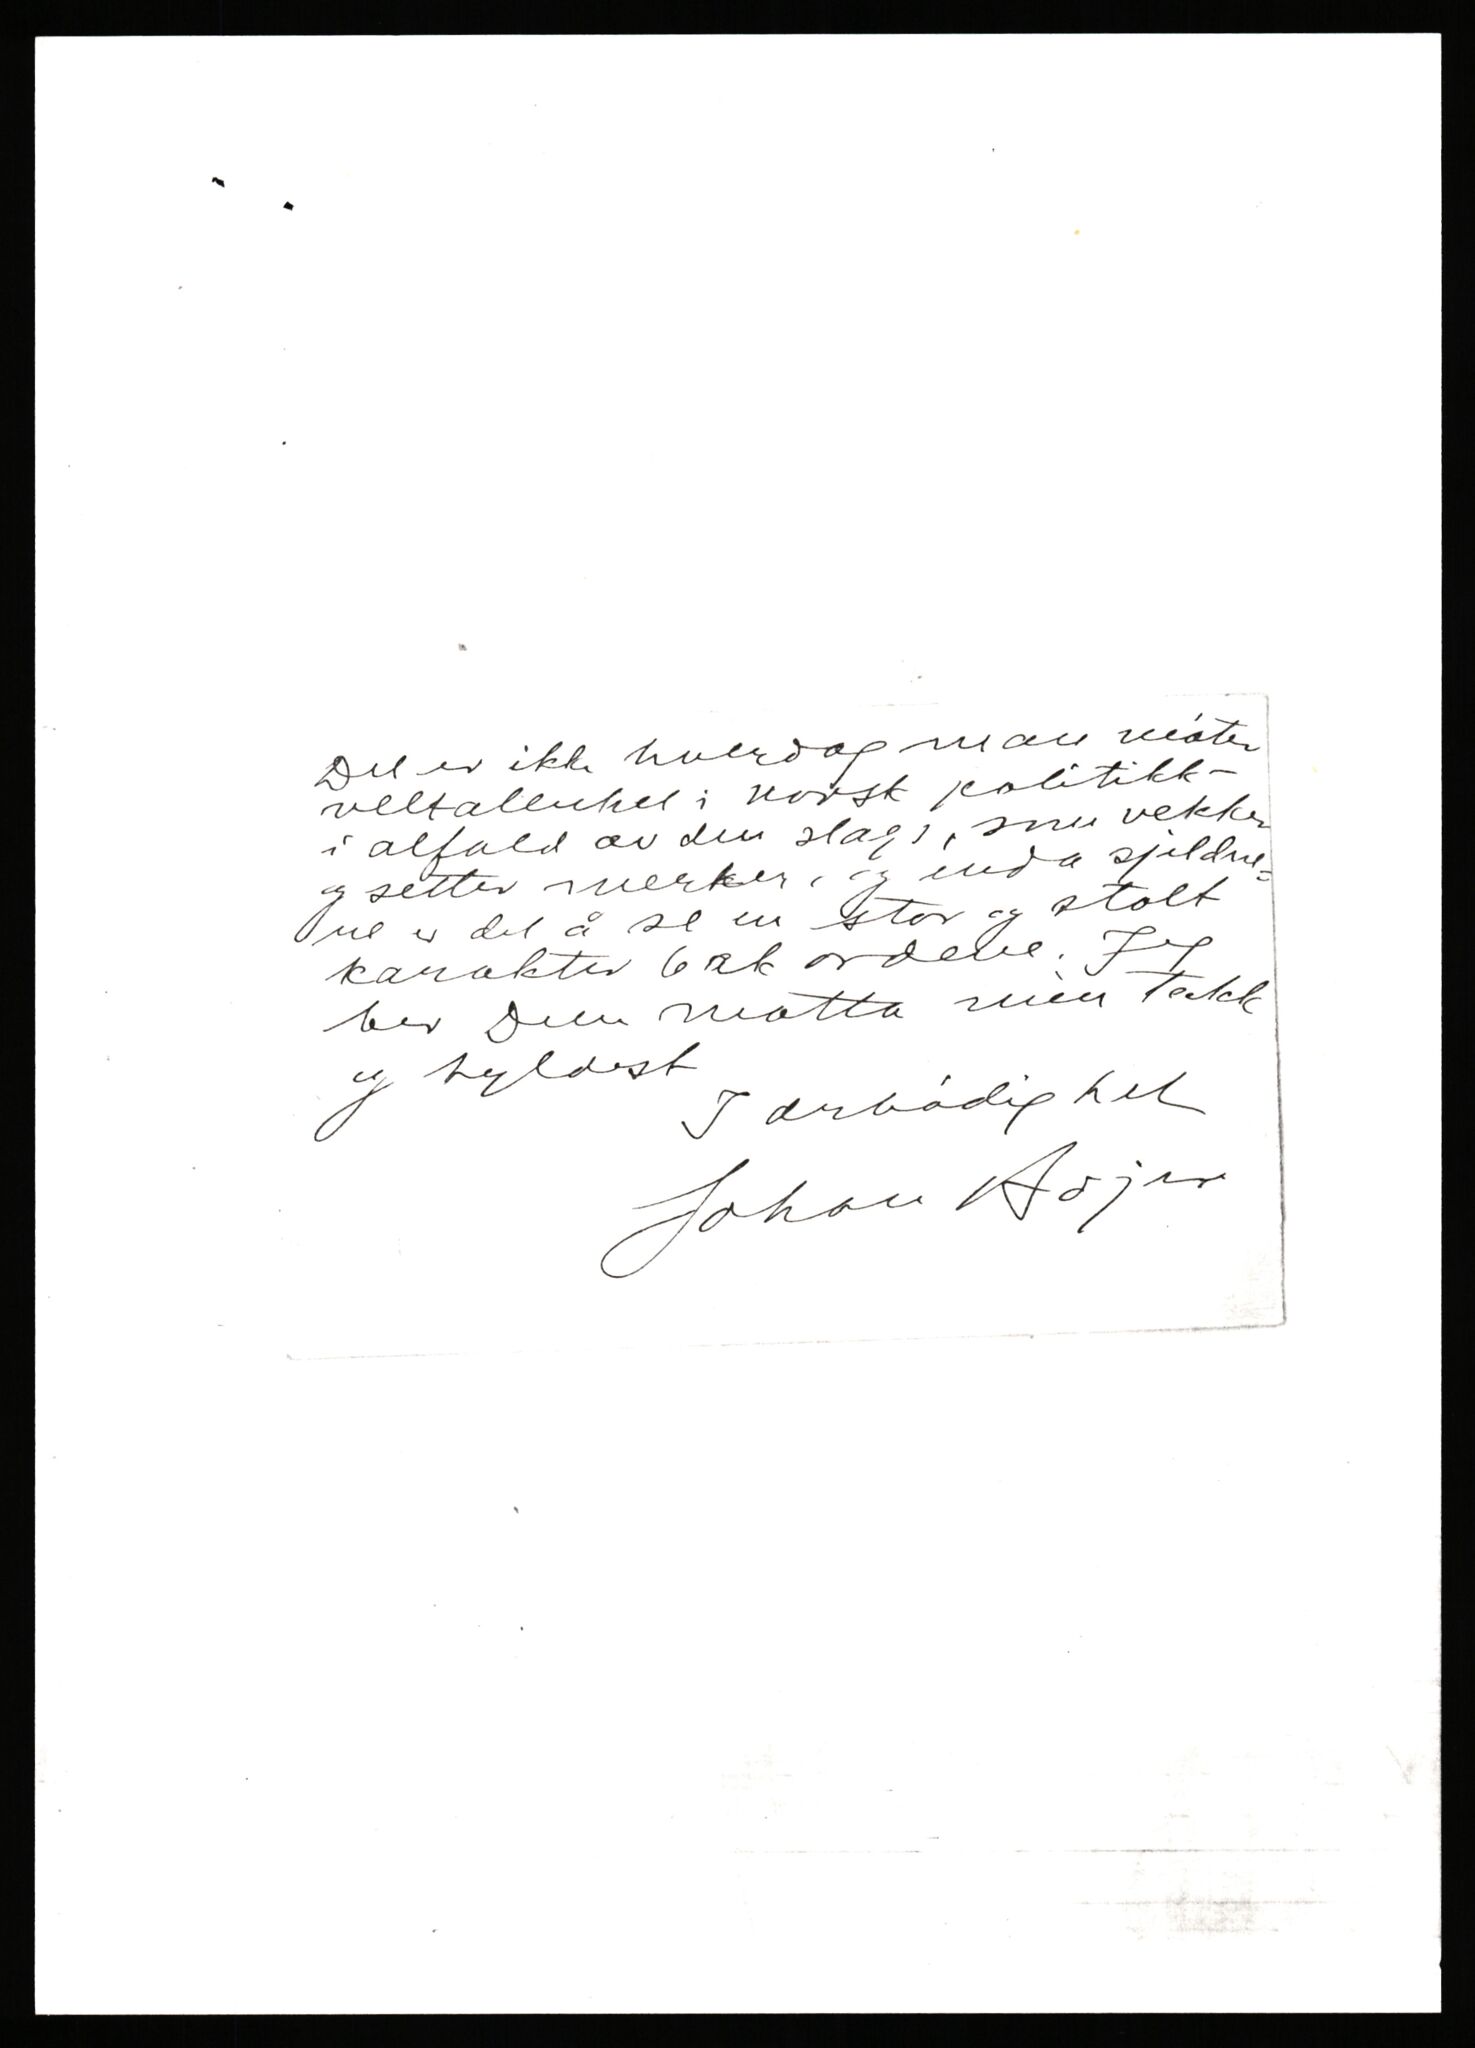 Det er ikke hverdag man møter
veltalenhet i norsk politikk -
i alfald av den slags, som vekker
og setter merker, og enda sjeldne=
re er det å se en stor og stolt
karakter bak ordene. Jeg
ber Dem motta min takk
og hyldest
I ærbødighet
Johan Bojer